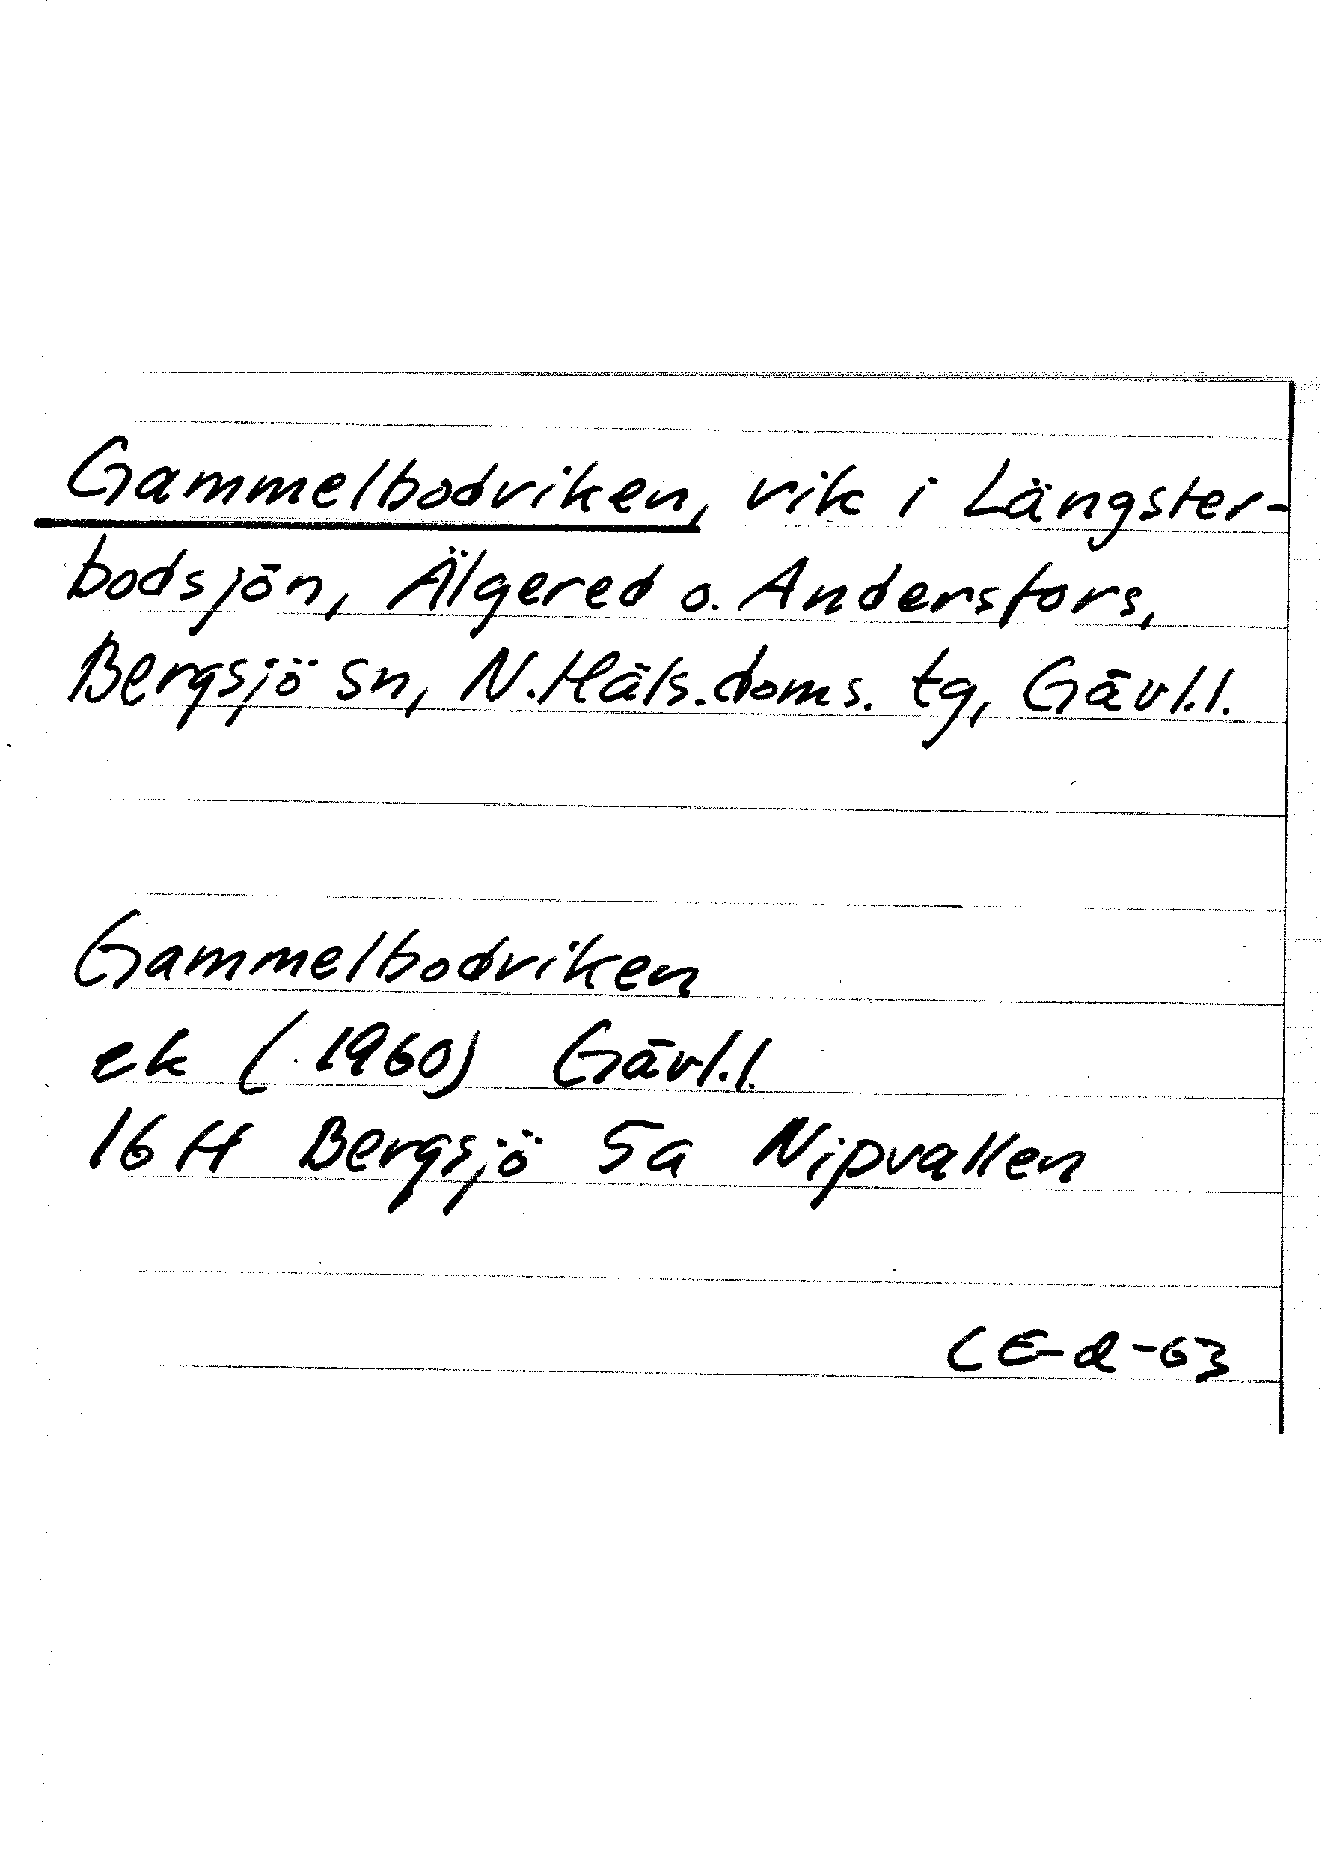 Gammelbodviken, vik i Längster-
bodsjön, Älgered o. Andersfors,
Bergsjö sn, N.Häls.doms. tg, Gävl.l.
Gammelbodviken
ek (1960) Gävl.l.
16 H Bergsjö 5a Nipvallen
CE-d-63